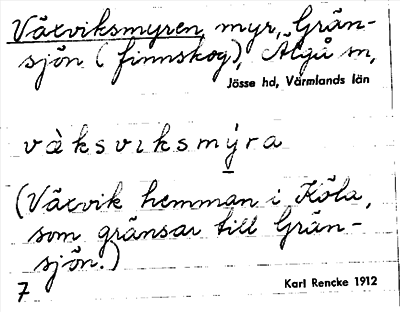 Växviksmyren, myr, Grän-
sjön (finnskog), Älgå sn,
Jösse hd, Värmlands län
vàksvıksmý̱ra
(Växvik hemman i Köla,
som gränsar till Grän-
sjön.)
7
Karl Rencke 1912